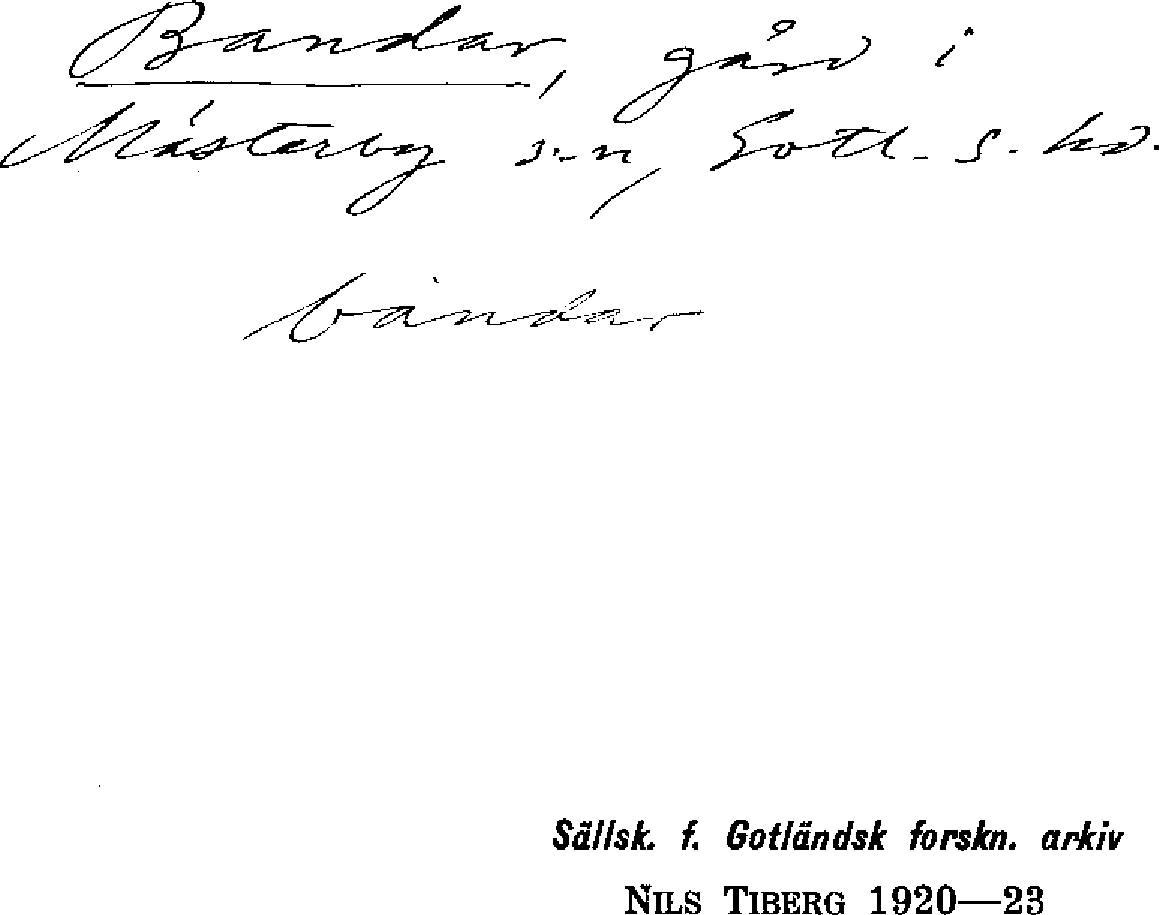 Bandar, gård i
Mästerby s:n, Gotl. s. hd.
bandar
Sällsk. f. Gotländsk forskn. arkiv
NILS TIBERG 1920—23